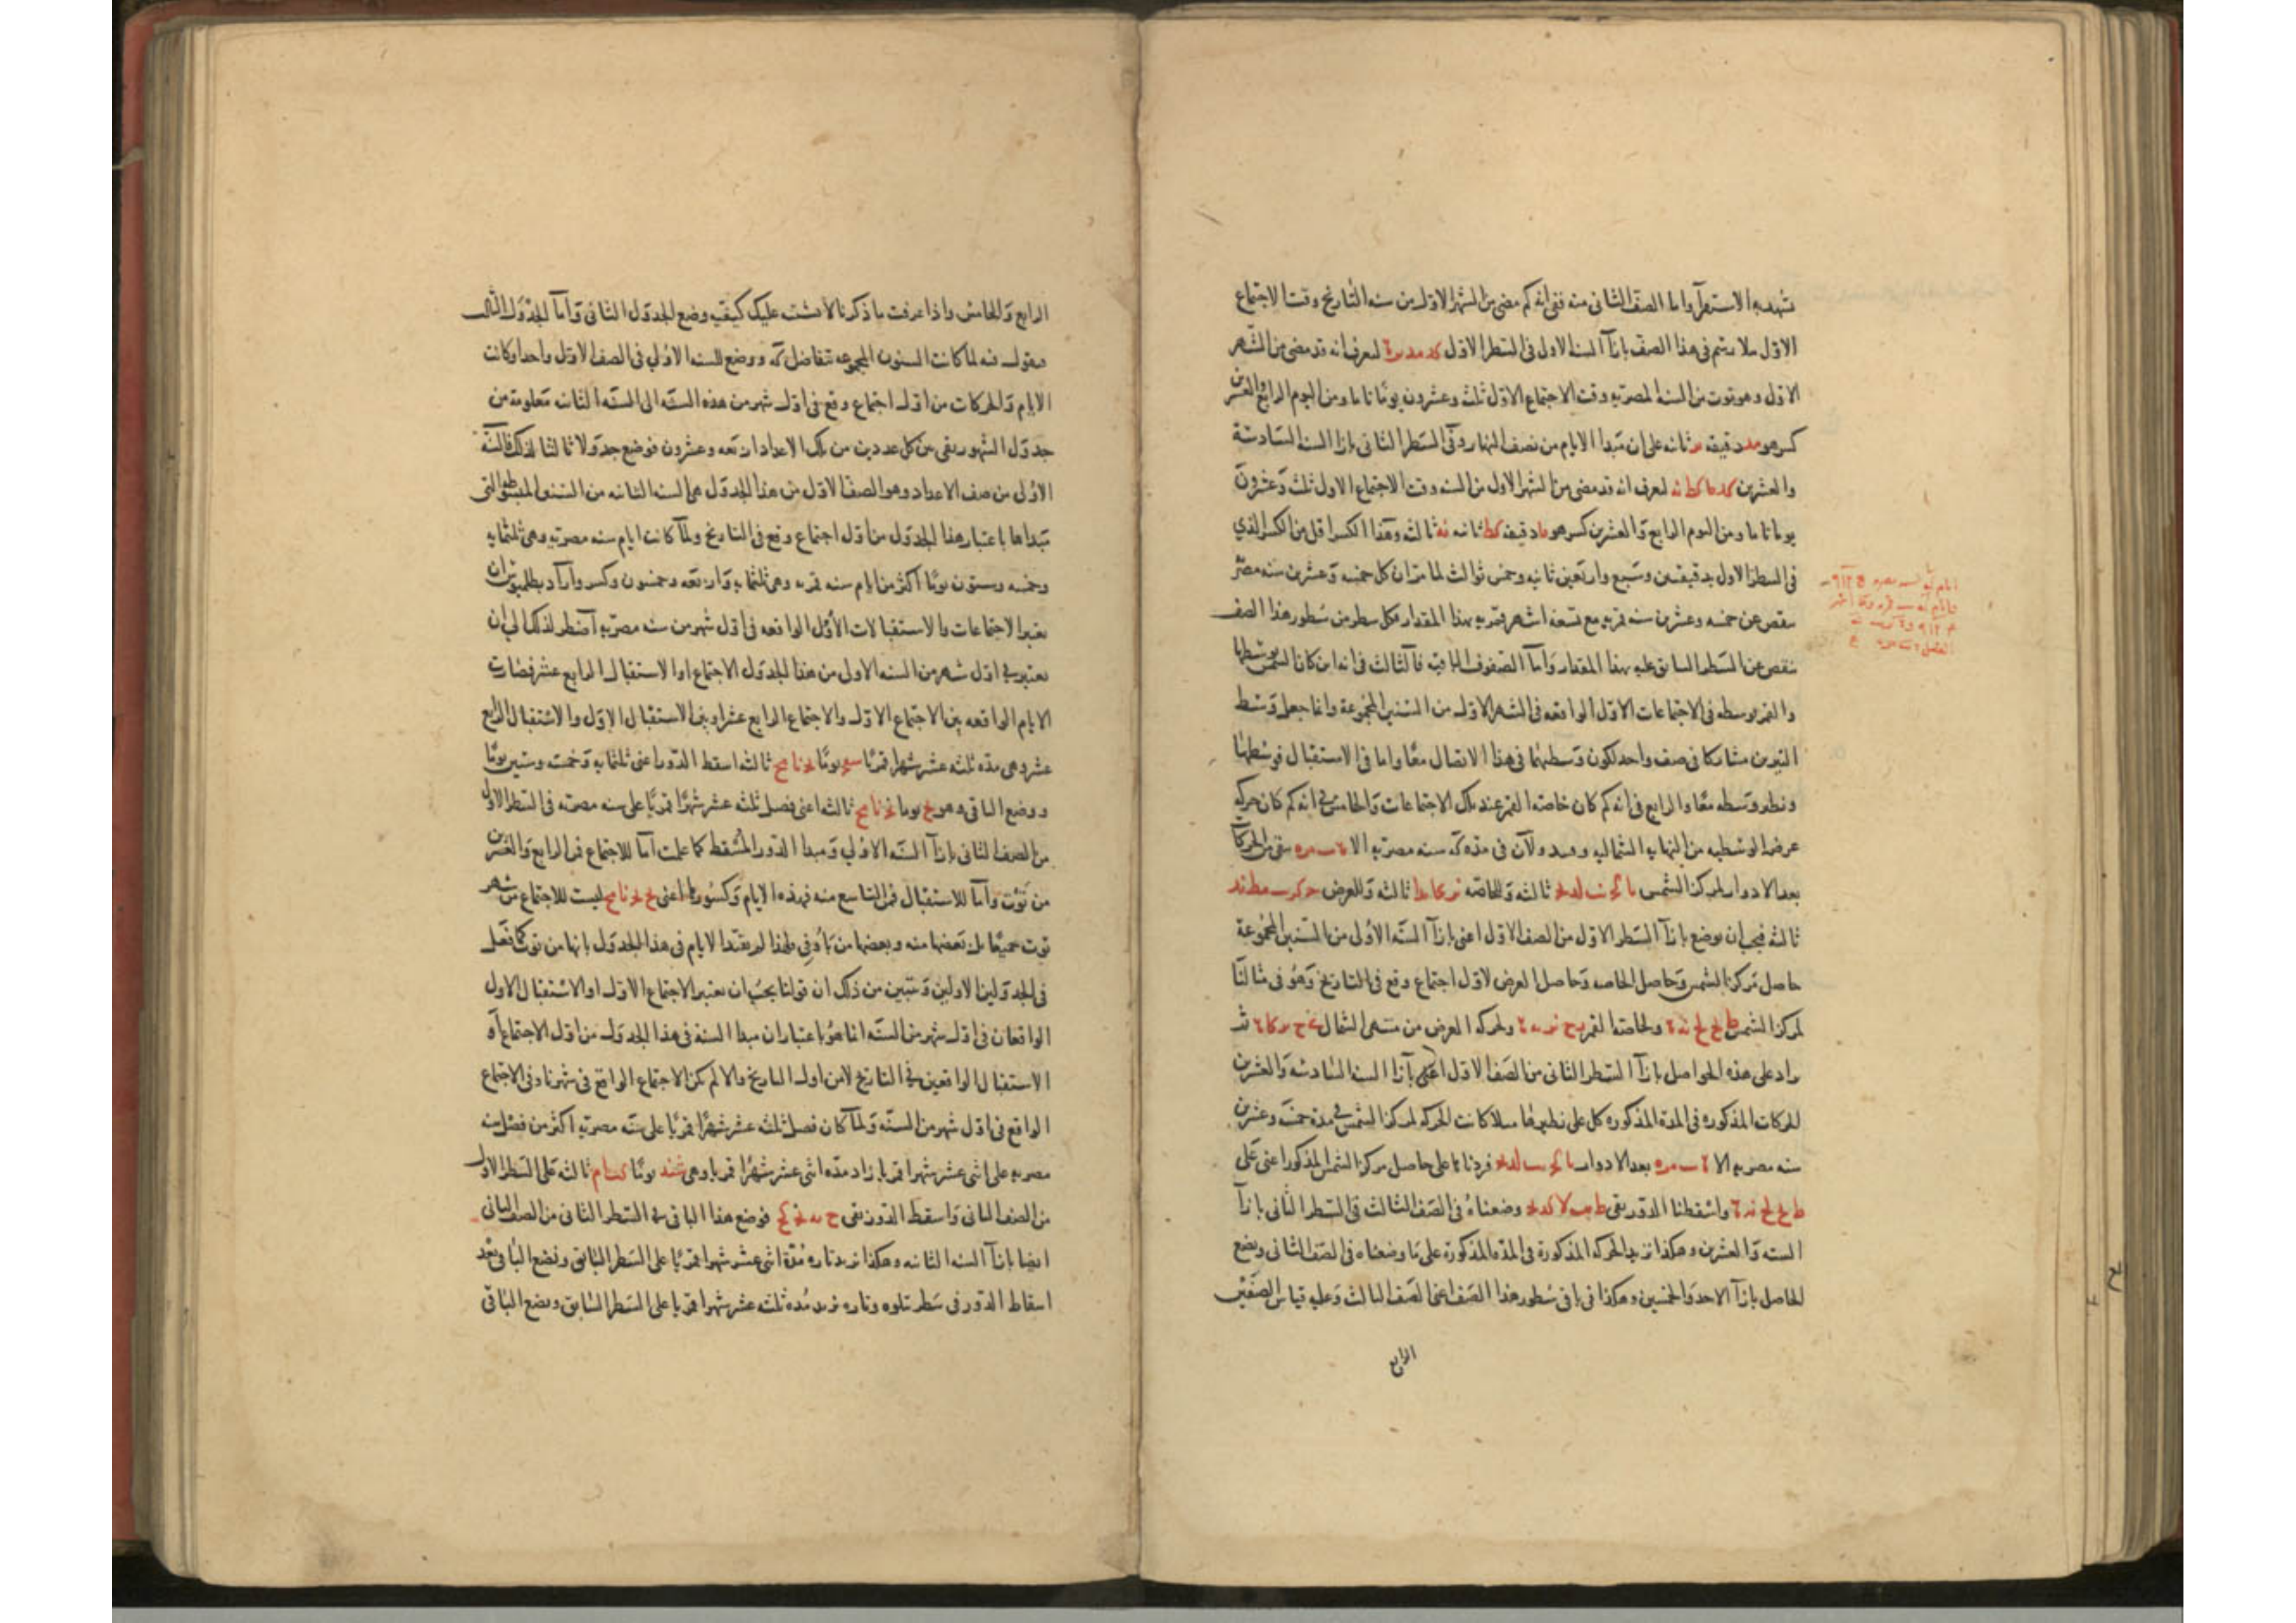 تشهد به الاستقرآ واما الصف الثاني منه ففي انه كم مضى من الشهر الاول من سنه التاريخ وقت الاجتماع
الاول مثلا رسم في هذا الصف بازآ السنه الاولى في السطر الاول كد مد ير ليعرف انه قد مضى من الشهر
الاول وهو توت من السنه المصريه وقت الاجتماع الاول ثلث وعشرون يومًا تاما ومن اليوم الرابع والعشرين
كسر هو مد دقيقه ير ثانه على ان مبدا الايام من نصف النهار وفي السطر الثاني بازا السنه السادسة
والعشرين ليعرف انه قد مضى من الشهر الاول من السنه وقت الاجتماع الاول ثلث وعشرون
يوما تاما ومن اليوم الرابع والعشرين كسر هو ما دقيقه كط ثانيه نه ثالثه وهذا الكسر اقل من الكسر الذي
في السطر الاول بدقيقتين وسبع واربعين ثانيه وخمس ثوالث لما مر ان كل خمسه وعشرين سنه مصريه
ينقص عن خمسه وعشرين سنه قمريه مع تسعه اشهر قمريه بهذا المقدار فكل سطر من سطور هذا الصف
ينقص عن السطر السابق عليه بهذا المقدار وآما الصفوف الباقيه فآلثالث في انه اين كان الشمس بوسطها
والقمر بوسطه في الاجتماعات الاول الواقعه في الشهر الاول من السنين المجموعة وانما جعل وسط
النيرين مشاركا في صف واحد لكون وسطيهما في هذا الاتصال معًا واما في الاستقبال فوسطها
ونظير وسطه معًا والرابع في انه كم كان خاصه القمر عند تلك الاجتماعات والخامس في انه كم كان حركه
عرض الوسطيه من النهايه الشماليه
بعد الادوار لمركز الشمس ثالثه وللخاصه ثالثه وللعرض
ثالثه فيجب ان يوضع بازآ السطر الاول من الصف الاول اعني بازآ السنه الاولى من السنين المجموعة
حاصل مركز الشمس وحاصل الخاصه وحاصل العرض لاول اجتماع وقع في التاريخ وهو في مثالنا
لمركز الشمس ولخاصه القمر ولحركه العرض من منتهى الشمال
وزاد على هذه الحواصل بازآ السطر الثاني من الصف الاول اعني بآزا السنه السادسه والعشرين
الحركات المذكوره في المدة المذكوره كل على نظيرها مثلا كانت الحركه لمركز الشمس في مدة خمسة وعشرين
سنه مصريه الا بعد الادوار فزدناها على حاصل مركز الشمس المذكور اعني على
واسقطنا الدور بقي وضعناه في الصف الثالث في السطر الثاني بازآ
السته والعشرين وهكذا نزيد الحركه المذكورة في المده المذكورة على ما وضعناه في الصف الثاني ونضع
الحاصل بازآ الاحد والخمسين وهكذا في باقي سطور هذا الصف اعني الصف الثالث وعليه قياس الصفين
الرابع
الرابع والخامس واذا عرفت ما ذكرنا لا يشتبه عليك كيفيه وضع الجدول الثاني وآما الجدول الثالث
فيقول فيه لما كانت السنون المجموعه تتفاضل كه ووضع للسنه الاولى في الصف الاول واحدا وكانت
الايام والحركات من اول اجتماع وقع في اول شهر من هذه السنه الى السنه الثانيه معلومة من
جدول الشهور بقي من كل عددين من تلك الاعداد اربعه وعشرون فوضع جدولا ثالثا لذلك فالسنة
الاولى من صف الاعداد وهو الصف الاول من هذا الجدول هي السنه الثانيه من السنين المبسوطه التي
مبداها باعتبار هذا الجدول من اول اجتماع وقع في التاريخ ولما كانت ايام سنه مصريه وهي ثلثمايه
وخمسه وستون يومًا اكثر من ايام سنه قمريه وهي ثلثمايه واربعه وخمسون وكسر وآراد بطلميوس ان
يعتبر الاجتماعات والاستقبالات الاول الواقعه في اول شهر من سنه مصريه آضطر لذلك الى ان
يعتبر في اول شهر من السنه الاولى من هذا الجدول الاجتماع او الاستقبال الرابع عشر فصارت
الايام الواقعه بين الاجتماع الاول والاجتماع الرابع عشر او بين الاستقبال الاول والاستقبال الرابع
عشر وهي مدة ثلثه عشر شهرا قمريًا يومًا ثالثه اسقط الدور اعني ثلثمايه وخمسه وستين يومًا
ووضع الباقي وهو يوما ثالثه اعني فضل ثلثه عشر شهرًا قمريًا على سنه مصريه في السطر الاول
من الصف الثاني بازآ السنه الاولى ومبدا الدور المسقط كما علمت آما للاجتماع فمن الرابع والعشرين
من توت وآما للاستقبال فمن التاسع منه فهذه الايام وكسورها اعني ليست للاجتماع من شهر
توت جميعًا بل بعضها منه وبعضها من بآوني فلهذا لم يقيد الايام في هذا الجدول بانها من توت كما فعل
في الجدولين الاولين وتبين من ذلك ان قولنا يجب ان يعتبر الاجتماع الاول او الاستقبال الاول
الواقعان في اول شهر من السنه انما هو باعتبار ان مبدا السنة في هذا الجدول من اول الاجتماع او
الاستقبال الواقعين في التاريخ لا من اول التاريخ والا لم يكن الاجتماع الواقع في شهر باوني الاجتماع
الواقع في اول شهر من السنه ولما كان فضل ثلثه عشر شهرًا قمريًا على سنه مصريه اكثر من فضل سنه
مصريه على اثنى عشر شهرا قمريا زاد مدّه اثنى عشر شهرًا قمريا وهي شند يومًا ثالثه على السطر الاول
من الصف الثاني واسقط الدور بقي فوضع هذا الباقي في السطر الثاني من الصف الثاني
ايضا بازآ السنه الثانيه وهكذا نزيد تاره مُدّة اثنى عشر شهرا قمريًا على السطر السابق ونضع الباقي بعد
اسقاط الدور في سطر يتلوه وتاره نزيد مُده ثلثه عشر شهرا قمريا على السطر السابق ونضع الباقي